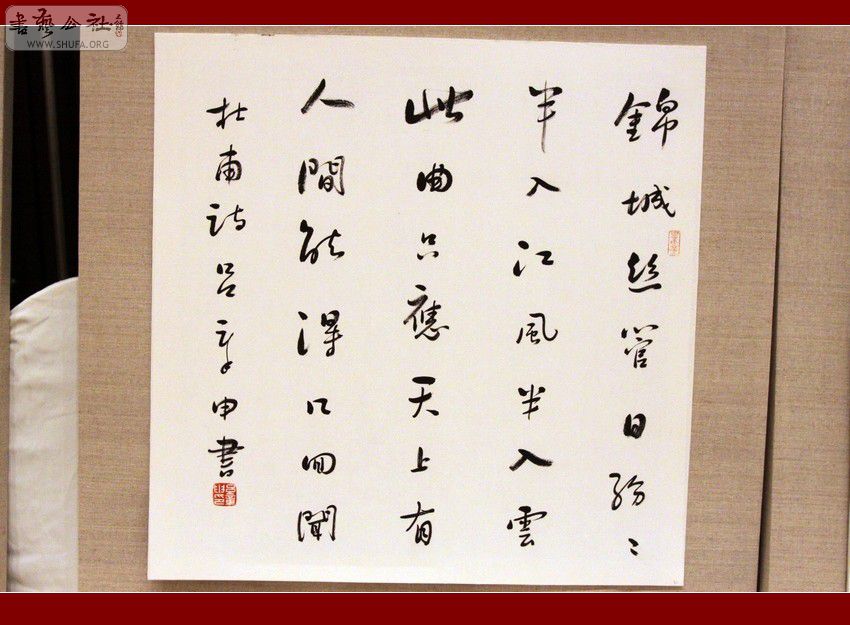 書藝公社
WWW.SHUFA.ORG
錦城丝管日紛〻
半入江風半入雲
此曲只應天上有
人間能得几回聞
杜甫詩呂章申書